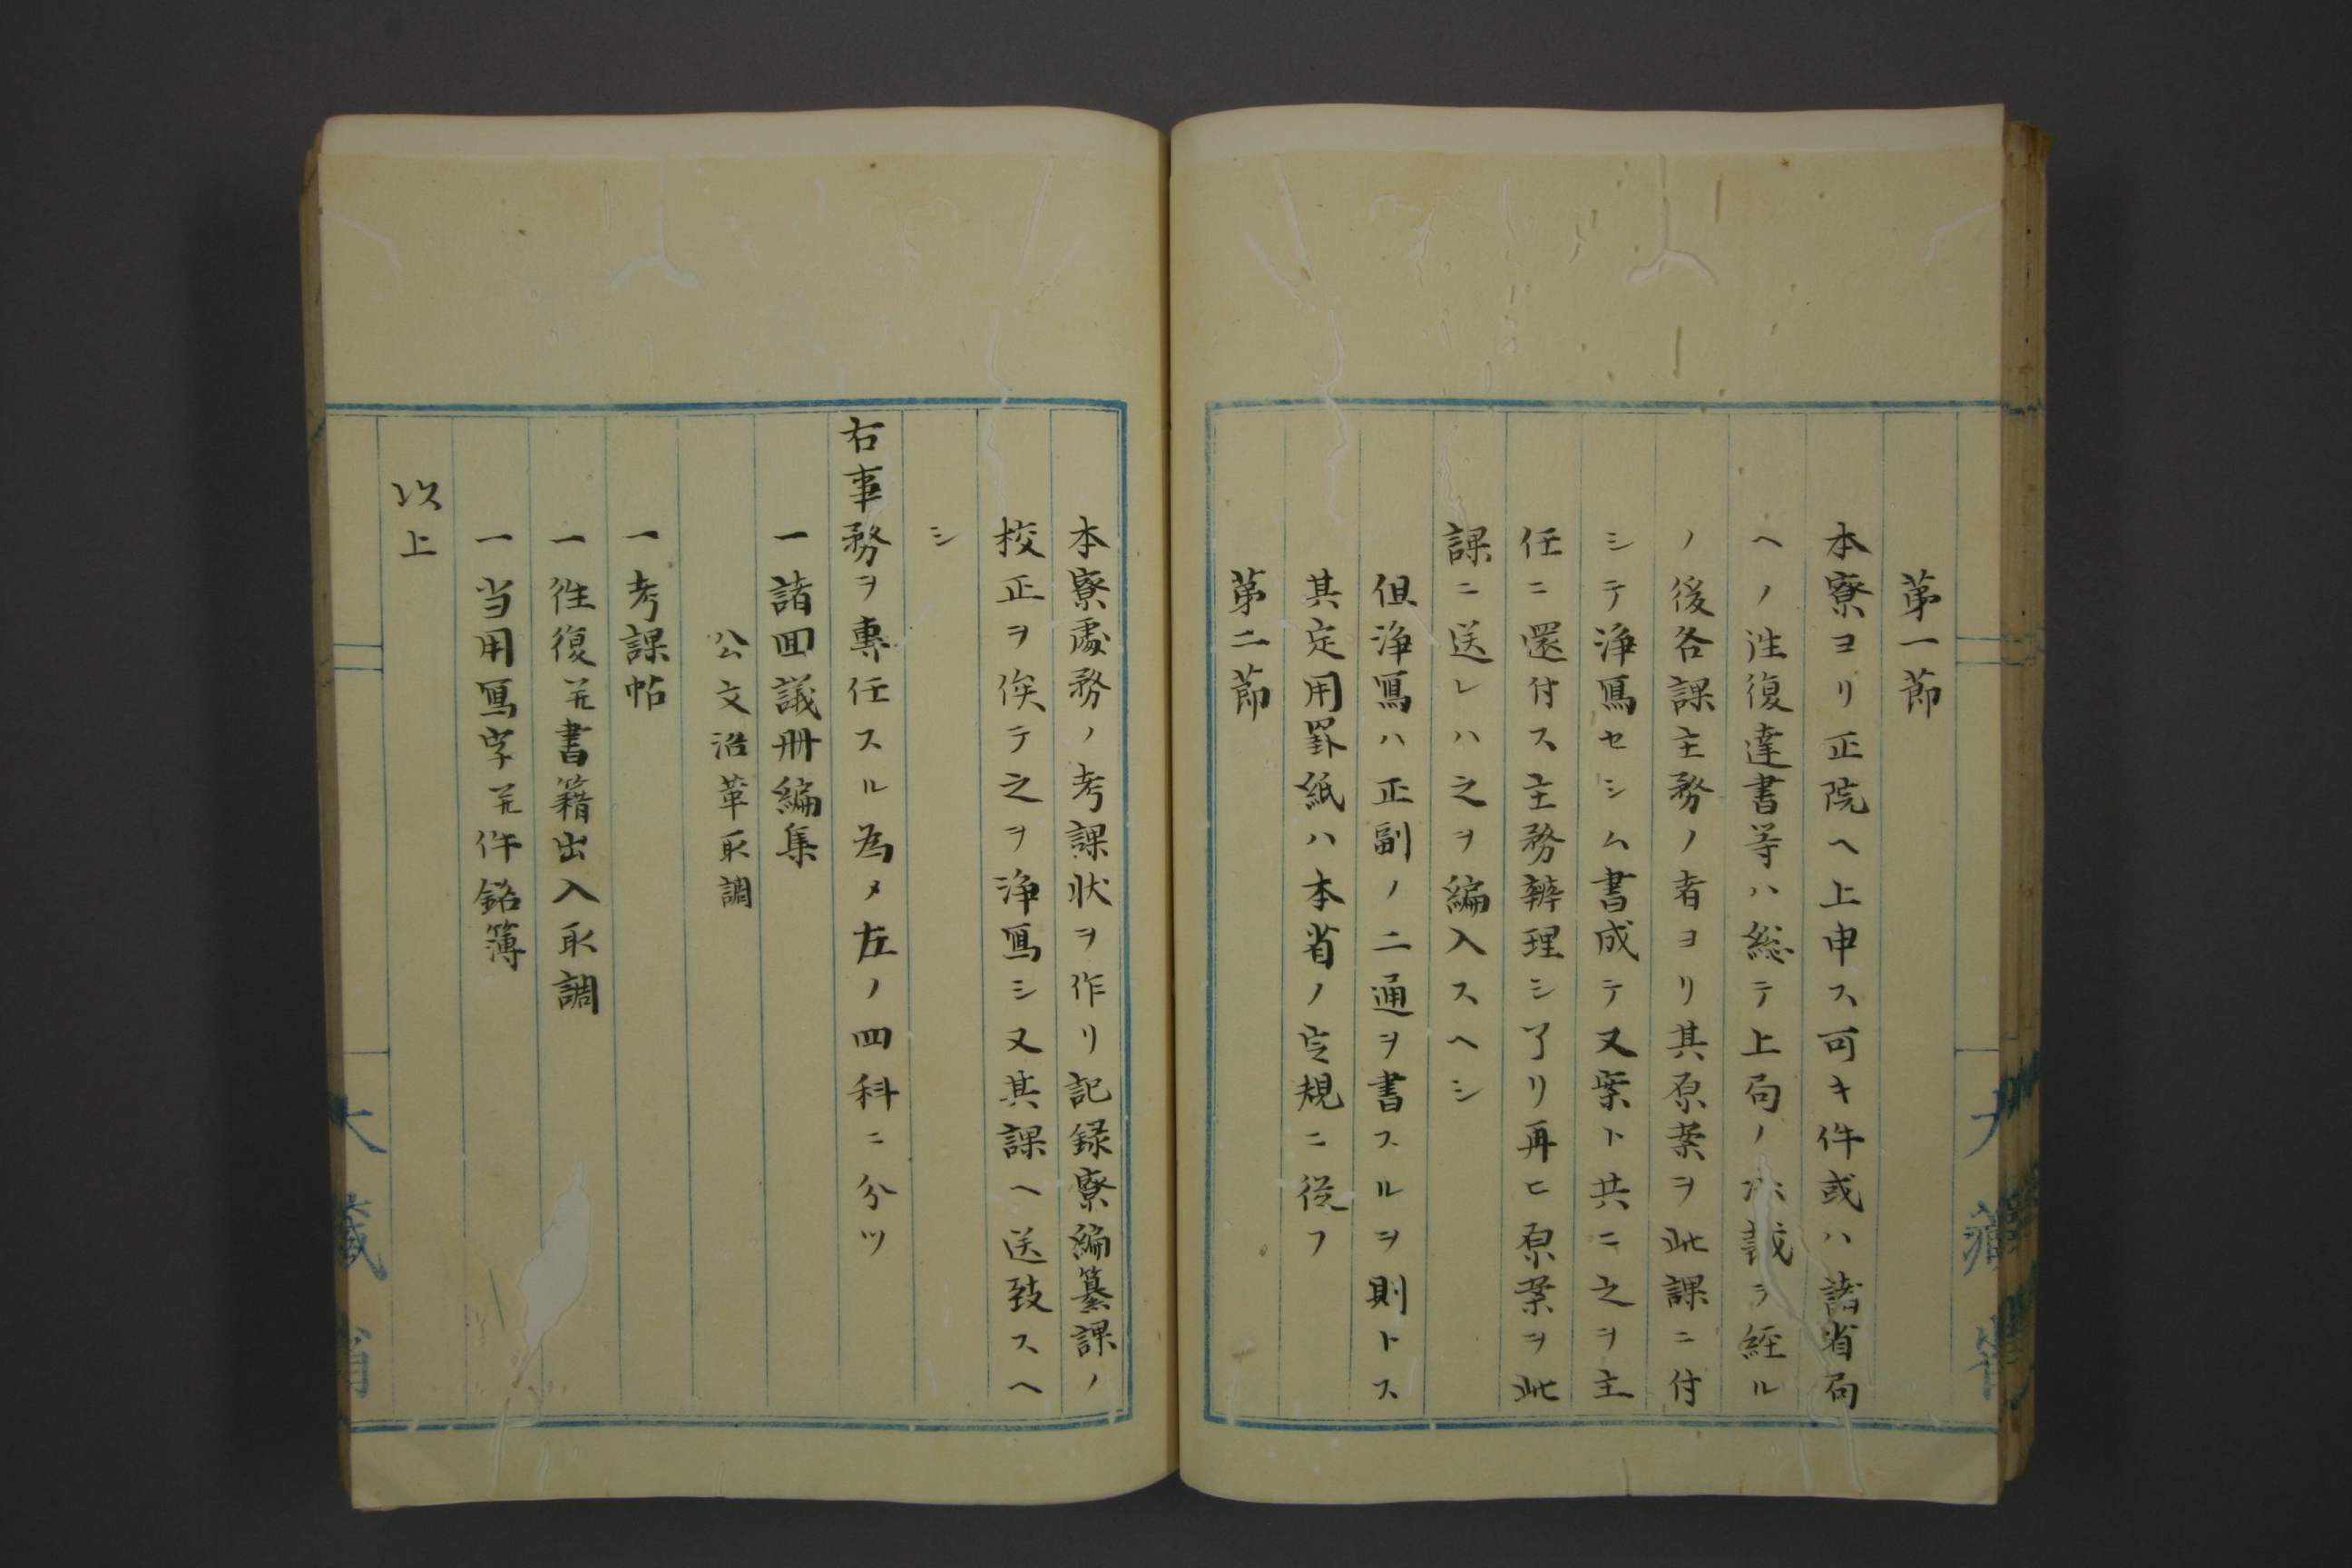 第一節
本寮ヨリ正院ヘ上申ス可キ件或ハ諸省局
ヘノ往復達書等ハ総テ上局ノ决裁ヲ経ル
ノ後各課主務ノ者ヨリ其原案ヲ此課ニ付
シテ浄寫セシム書成テ又案ト共ニ之ヲ主
任ニ還付ス主務辨理シ了リ再ヒ原案ヲ此
課ニ送レハ之ヲ編入スヘシ
但浄寫ハ正副ノ二通ヲ書スルヲ則トス
其定用罫紙ハ本省ノ定規ニ從フ
第二節
本寮處務ノ考課状ヲ作リ記録寮編纂課ノ
校正ヲ俟テ之ヲ浄寫シ又其課ヘ送致スヘ
シ
右事務ヲ專任スル為メ左ノ四科ニ分ツ
一諸回議册編集
公文沿革取調
一考課帖
一往復并書籍出入取調
一当用寫字并件銘簿
以上
大藏省